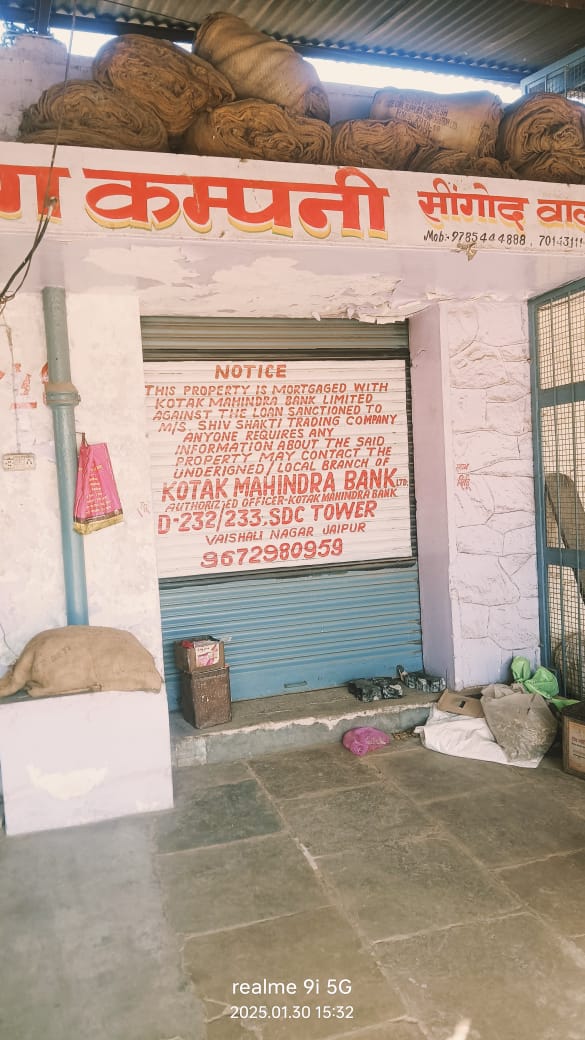 कम्पनी
सींगोद
Mob:- 9785444888,
NOTICE
THIS PROPERTY IS MORTGAGED WITH
KOTAK MAHINDRA BANK LIMITED
AGAINST THE LOAN SANCTIONED TO
M/S. SHIV SHAKTI TRADING COMPANY
ANYONE REQUIRES ANY
INFORMATION ABOUT THE SAID
PROPERTY MAY CONTACT THE
UNDERIGNED/LOCAL BRANCH OF
KOTAK MAHINDRA BANK LTD.
AUTHORIZED OFFICER-KOTAK MAHINDRA BANK
D-232/233.SDC TOWER
VAISHALI NAGAR JAIPUR
9672980959
realme 9i 5G
2025.01.30 15:32